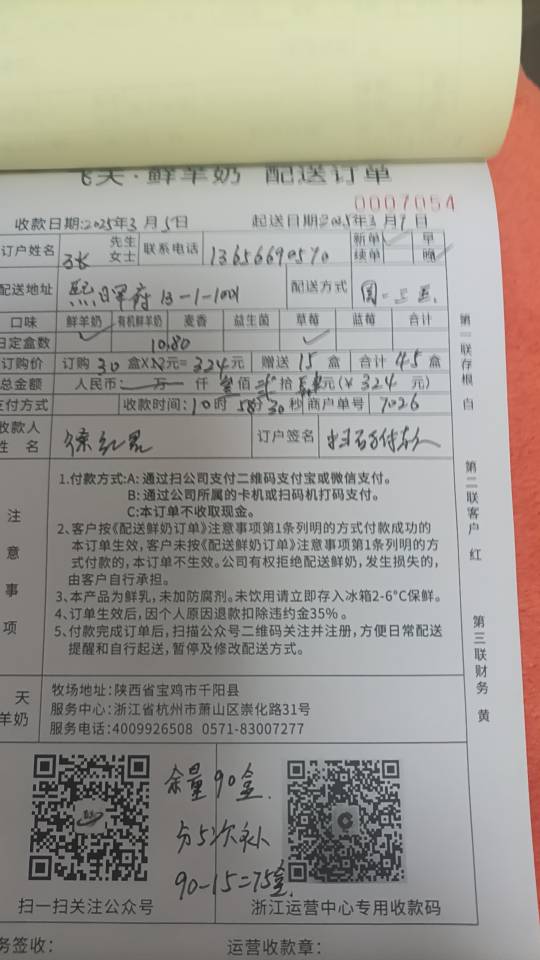 飞天·鲜羊奶 配送订单
0007054
收款日期:2025年3月5日 起送日期2025年3月9日
订户姓名 张 先生 女士 联系电话 13656690570 新单✓ 续单 早 晚✓
配送地址 熙日翠府 13-1-1001 配送方式 周一三五
口味 鲜羊奶✓ 有机鲜羊奶 麦香 益生菌 草莓✓ 蓝莓 合计
日定盒数 10.80
订购价 订购 30 盒X 元=324元 赠送 15 盒 合计 45 盒
总金额 人民币: 万 仟 叁佰 贰拾 元(¥ 324 元)
支付方式 收款时间:10时58分30秒 商户单号 7026
收款人姓名 订户签名
注意事项
1.付款方式:A: 通过扫公司支付二维码支付宝或微信支付。
B: 通过公司所属的卡机或扫码机打码支付。
C:本订单不收取现金。
2、客户按《配送鲜奶订单》注意事项第1条列明的方式付款成功的
本订单生效,客户未按《配送鲜奶订单》注意事项第1条列明的方
式付款的,本订单不生效。公司有权拒绝配送鲜奶,发生损失的,
由客户自行承担。
3、本产品为鲜乳,未加防腐剂。未饮用请立即存入冰箱2-6°C保鲜。
4、订单生效后,因个人原因退款扣除违约金35%。
5、付款完成订单后,扫描公众号二维码关注并注册,方便日常配送
提醒和自行起送,暂停及修改配送方式。
第一联存根 白
第二联客户 红
第三联财务 黄
天
羊奶
牧场地址:陕西省宝鸡市千阳县
服务中心:浙江省杭州市萧山区崇化路31号
服务电话:4009926508 0571-83007277
余量90盒.
分5次补
90-15=75盒.
扫一扫关注公众号
浙江运营中心专用收款码
务签收: 运营收款章: